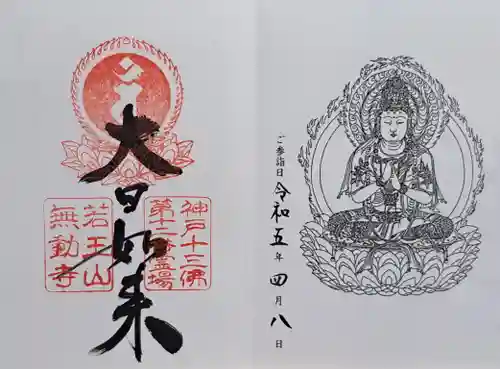 大日如来
神戸十三佛
第十二番霊場
若王山
無動寺
ご参詣日 令和五年四月八日